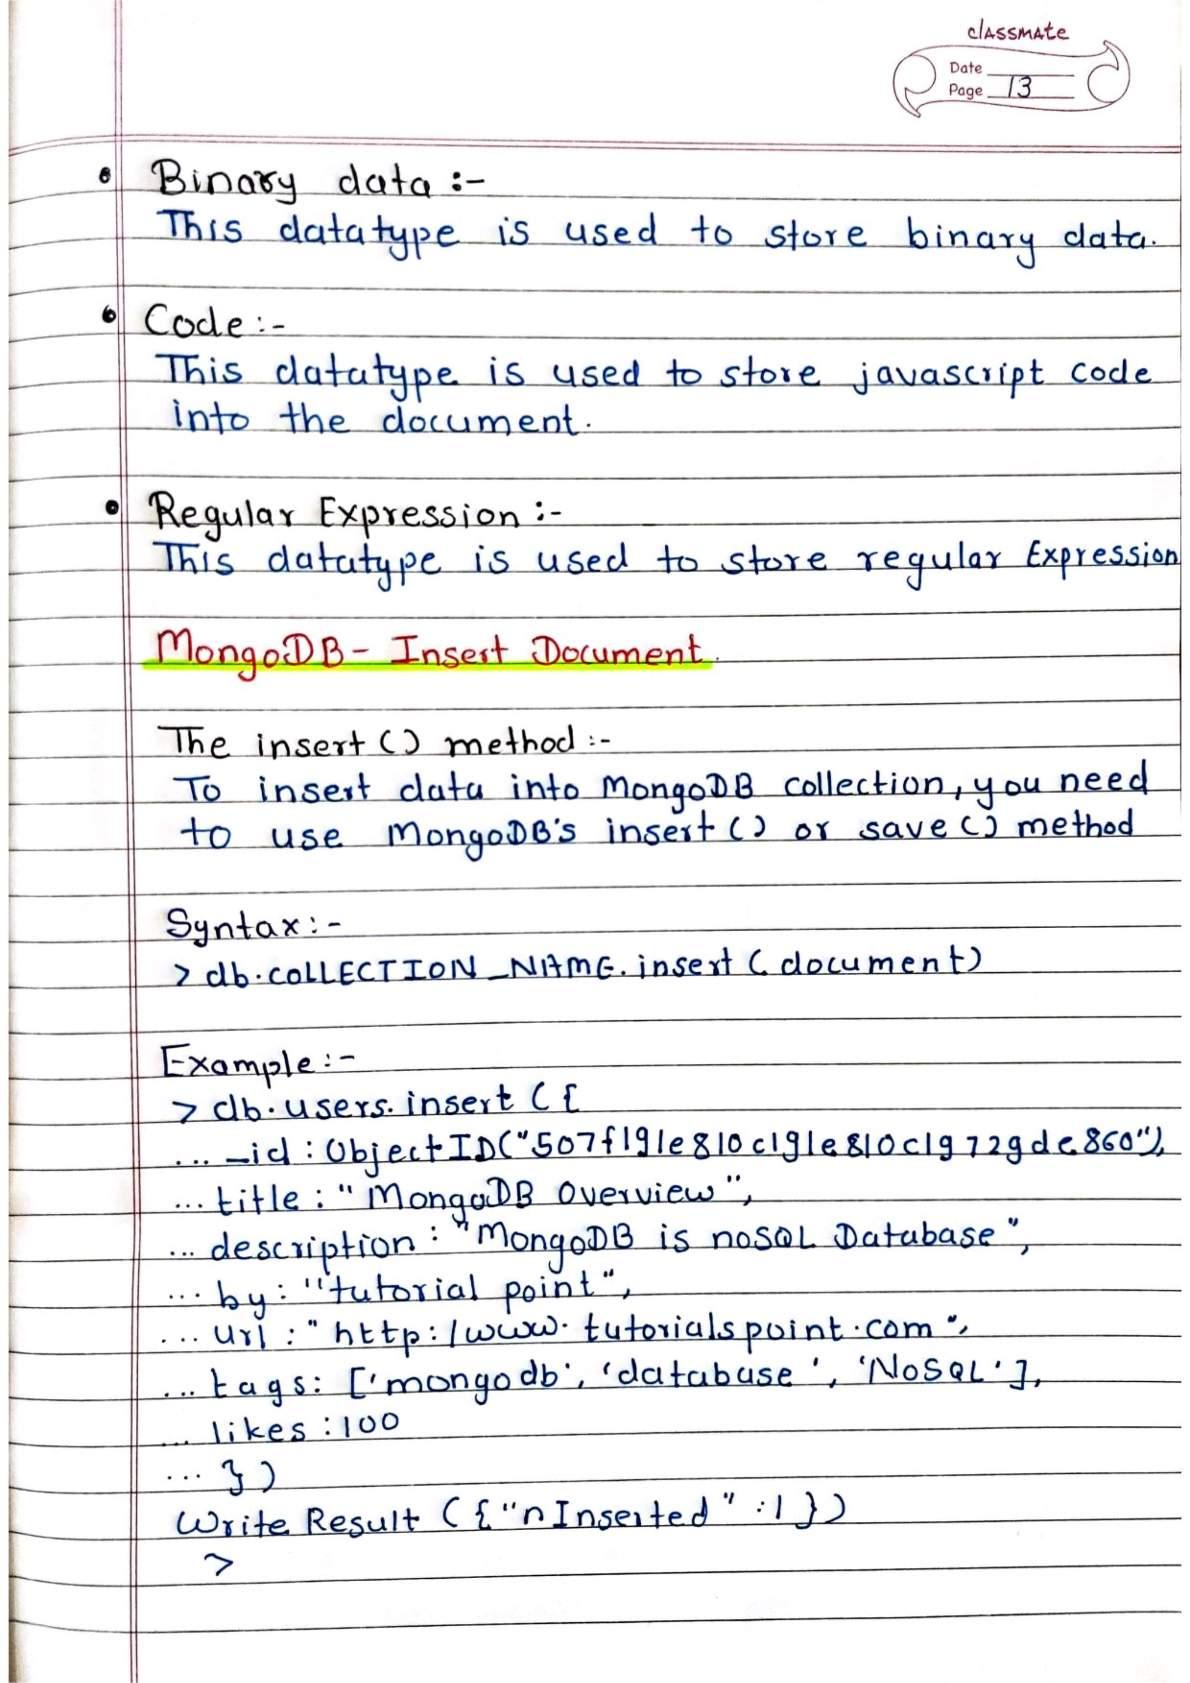 classmate
Date
Page 13
• Binary data :-
This datatype is used to store binary data.
• Code :-
This datatype is used to store javascript code
into the document.
• Regular Expression :-
This datatype is used to store regular Expression
MongoDB - Insert Document.
The insert () method :-
To insert data into MongoDB collection, you need
to use MongoDB's insert () or save () method
Syntax :-
> db.COLLECTION_NAME.insert (document)
Example :-
> db.users.insert ({
... _id : ObjectID("507f191e810c191e810c19729de860"),
... title : "MongoDB Overview",
... description : "MongoDB is noSQL Database",
... by : "tutorial point",
... url : "http:/www.tutorialspoint.com",
... tags: ['mongodb', 'database', 'NoSQL'],
... likes : 100
... })
Write Result ({"nInserted" : 1 })
>